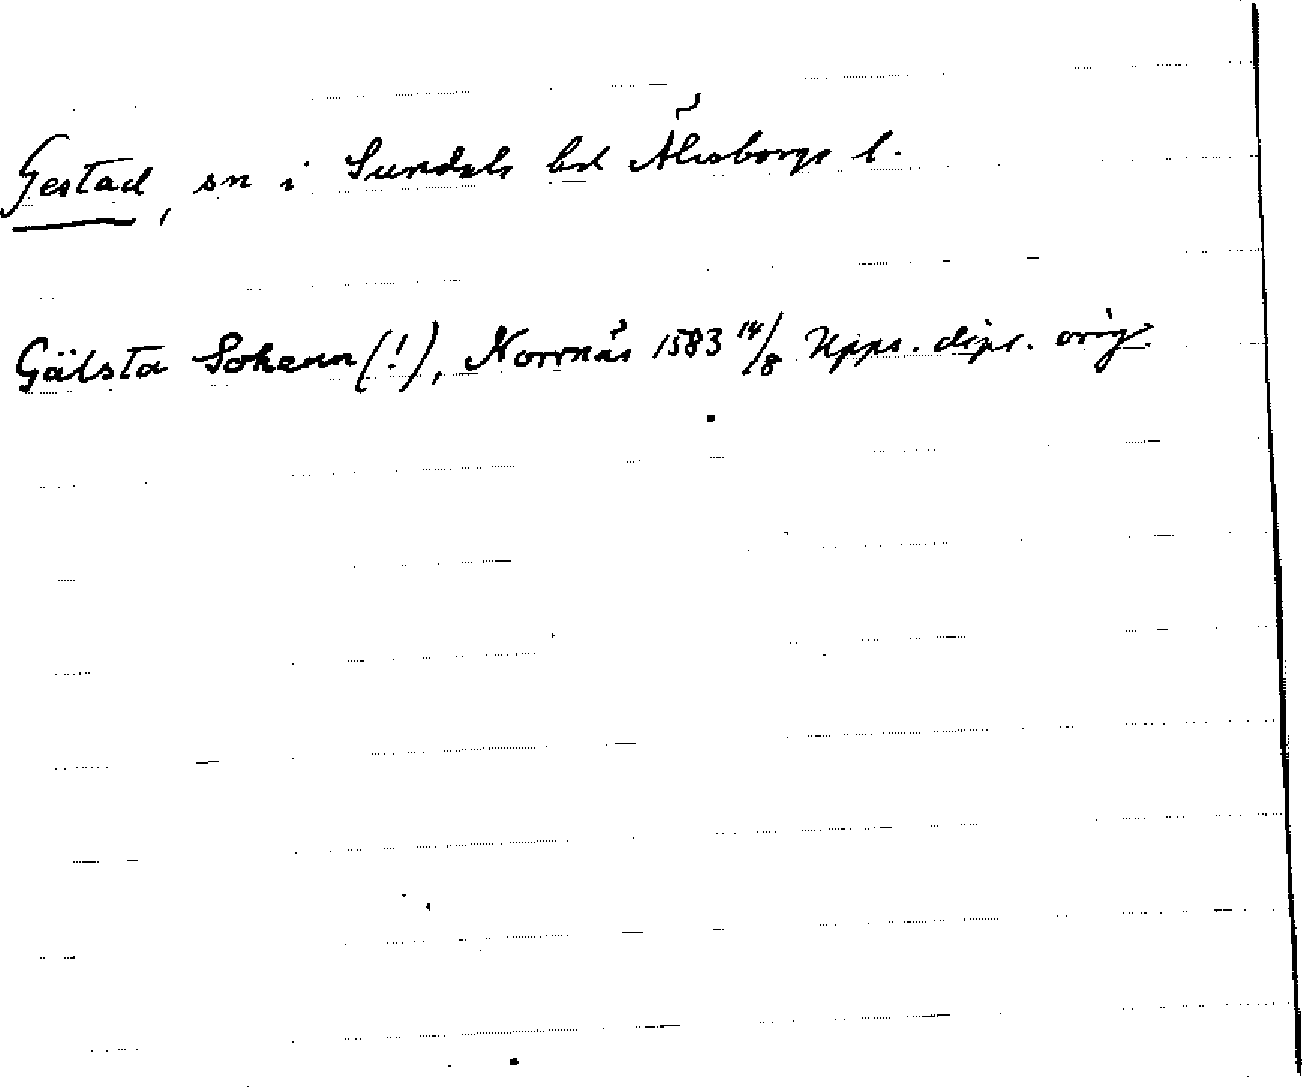 Gestad, sn i Sundals hd Älvsborgs l.
Gälsta Sokenn (!), Norrnäs 1583 14/8 Upps. dipl. orig.